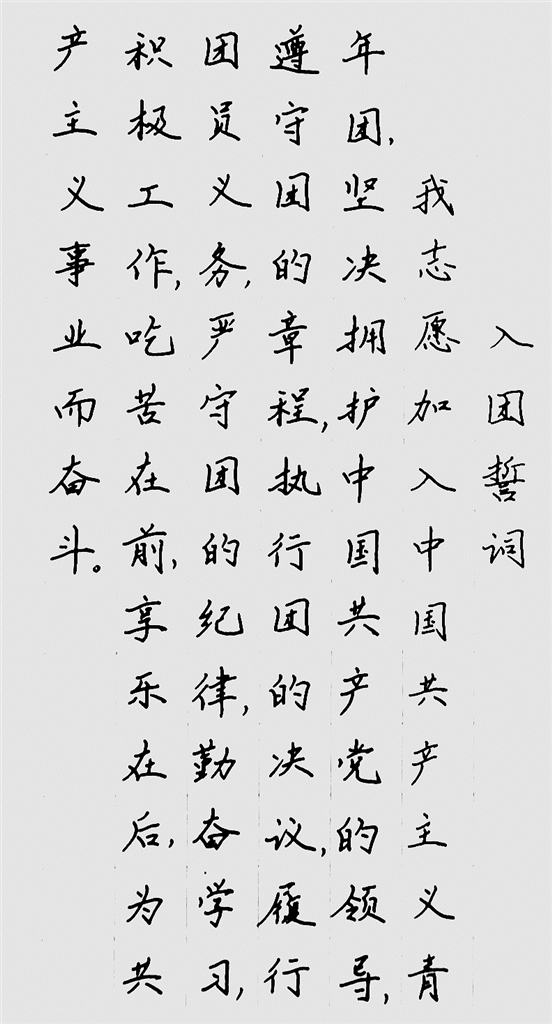 入团誓词
我志愿加入中国共产主义青
年团,坚决拥护中国共产党的领导,
遵守团的章程,执行团的决议,履行
团员义务,严守团的纪律,勤奋学习,
积极工作,吃苦在前,享乐在后,为共
产主义事业而奋斗。